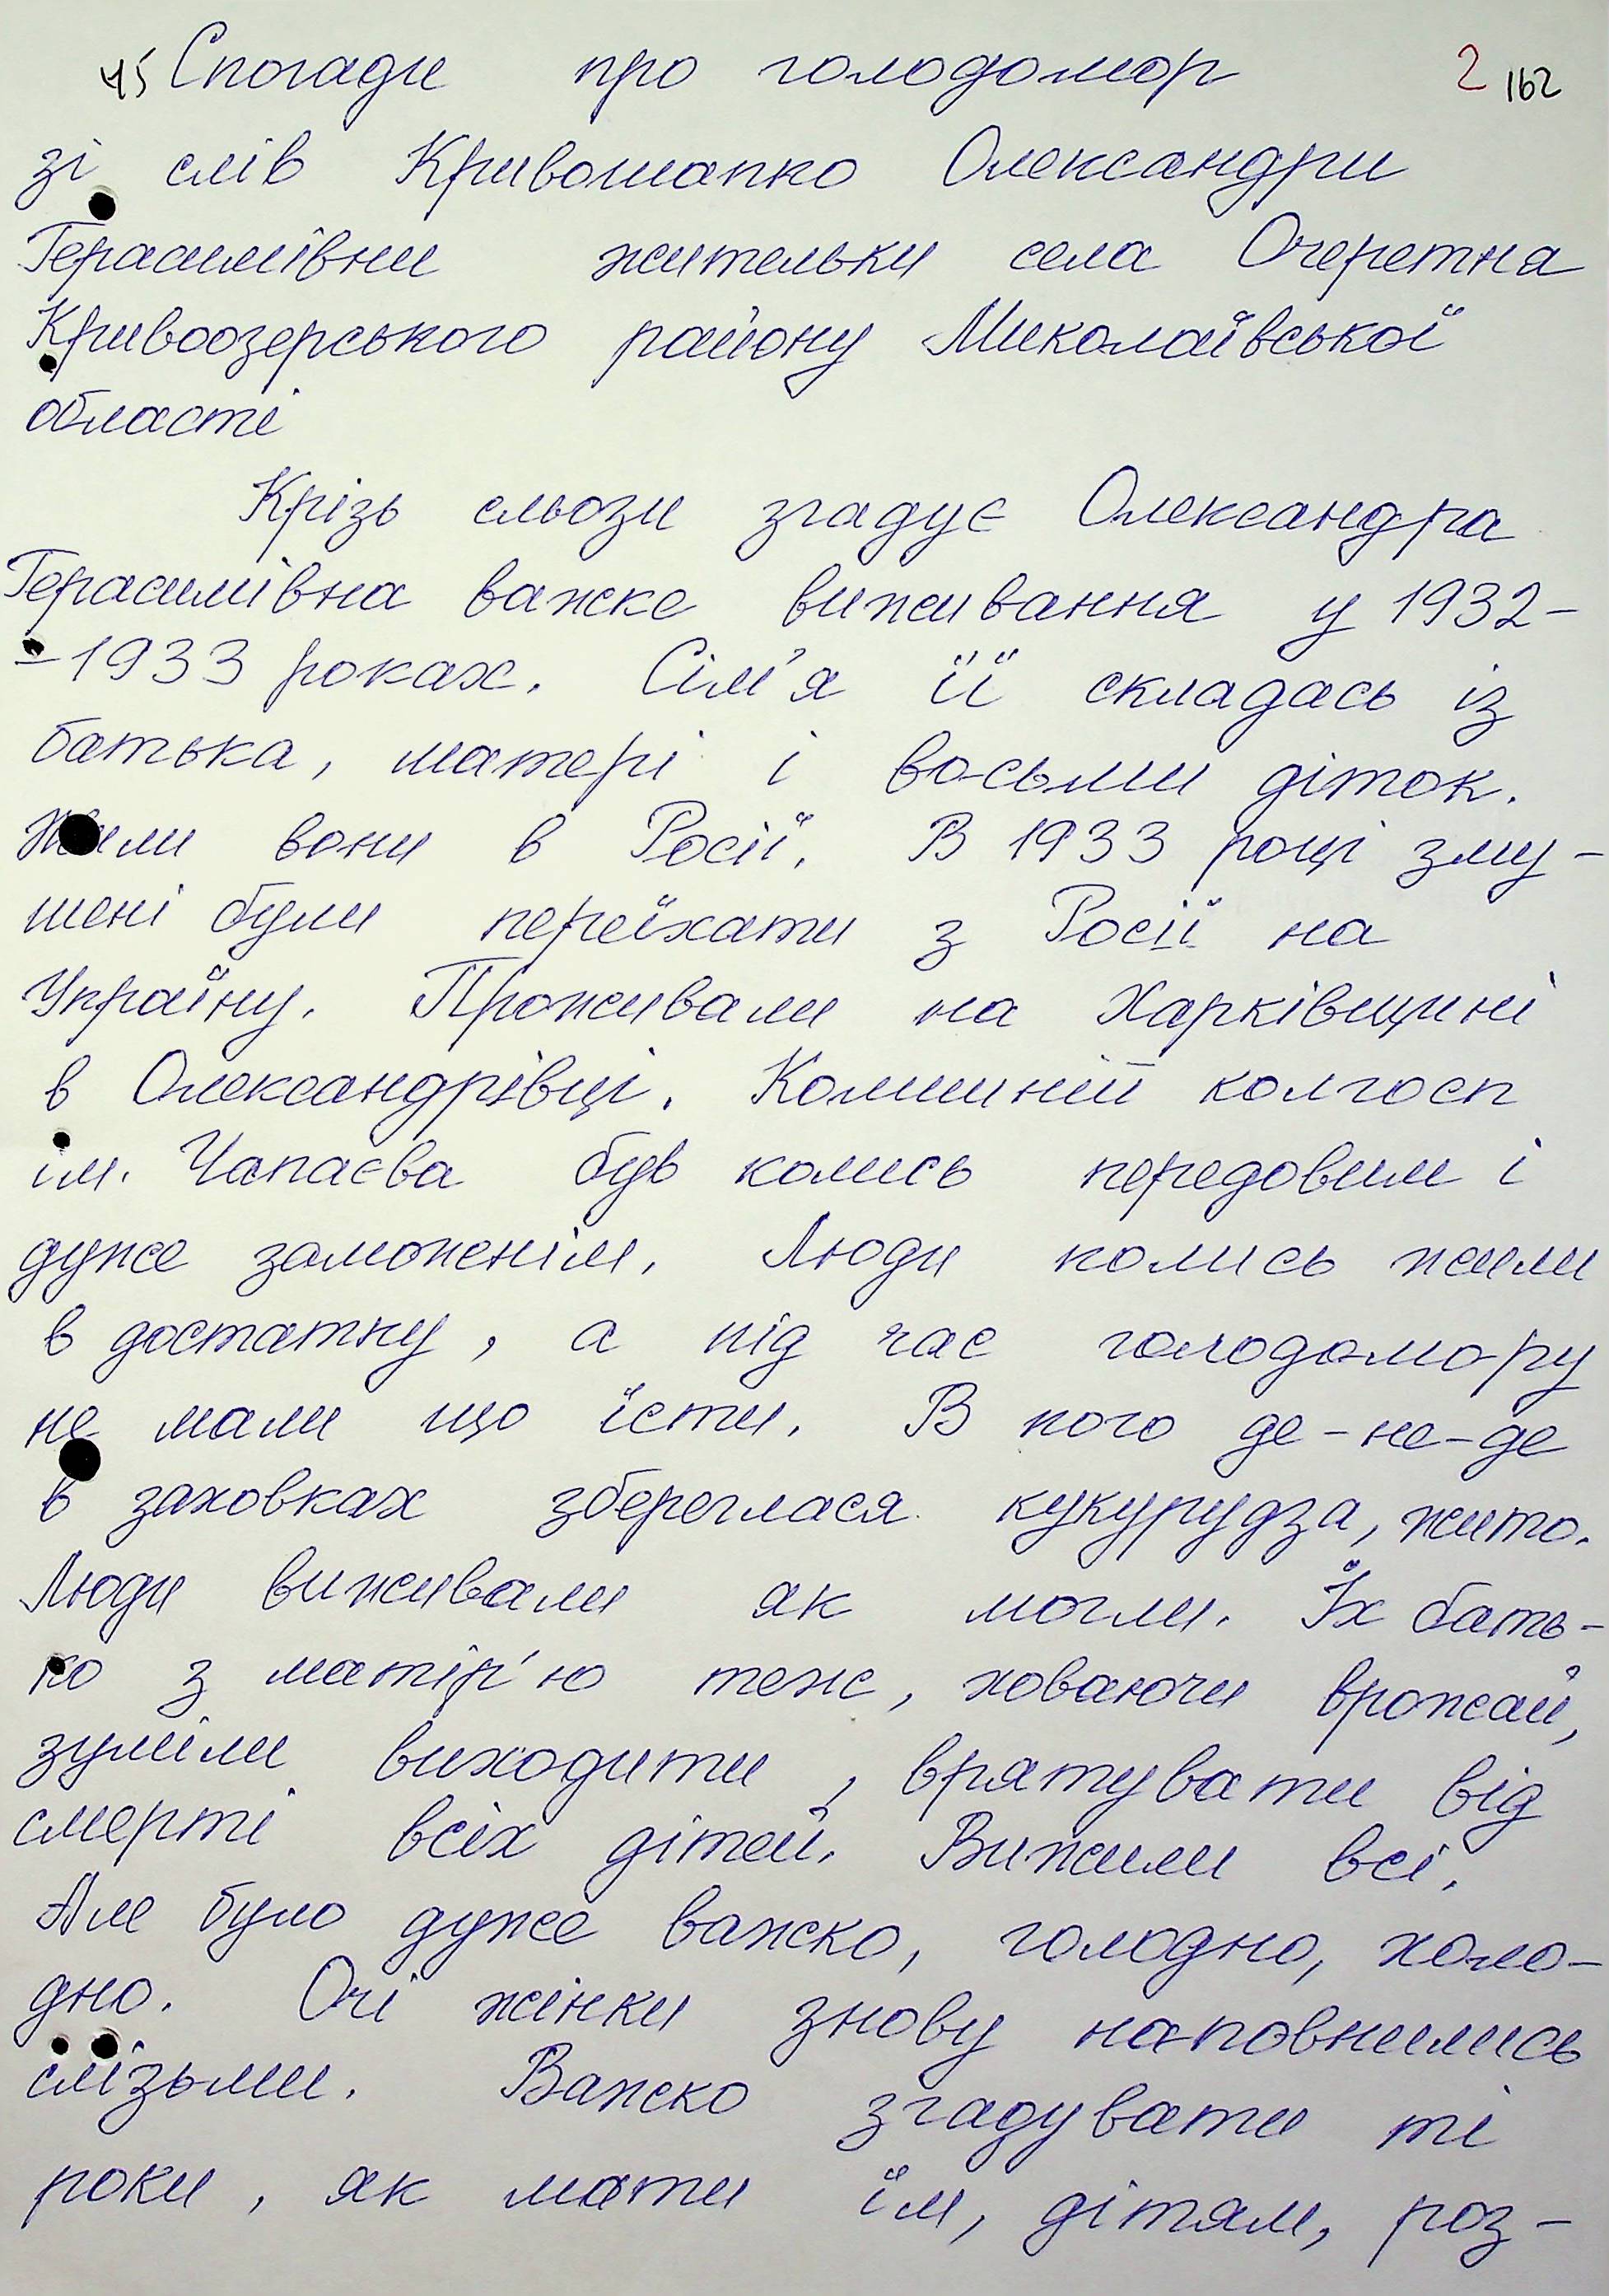 45 Спогади про голодомор 2 162
зі слів Кривошапко Олександри
Герасимівни жительки села Очеретна
Кривоозерського району Миколаївської
області
Крізь сльози згадує Олександра
Герасимівна важке виживання у 1932-
-1933 роках. Сім'я її складась із
батька, матері і восьми діток.
Жили вони в Росії. В 1933 році зму-
шені були переїхати з Росії на
Україну. Проживали на Харківщині
в Олександрівці. Колишній колгосп
ім. Чапаєва був колись передовим і
дуже заможнім. Люди колись жили
в достатку, а під час голодомору
не мали що їсти. В кого де-не-де
в заховках збереглася кукурудза, жито.
Люди виживали як могли. Їх бать-
ко з матір'ю теж, ховаючи врожай,
зуміли виходити, врятувати від
смерті всіх дітей. Вижили всі.
Але було дуже важко, голодно, холо-
дно. Очі жінки знову наповнились
слізьми. Важко згадувати ті
роки, як мати їм, дітям, роз-